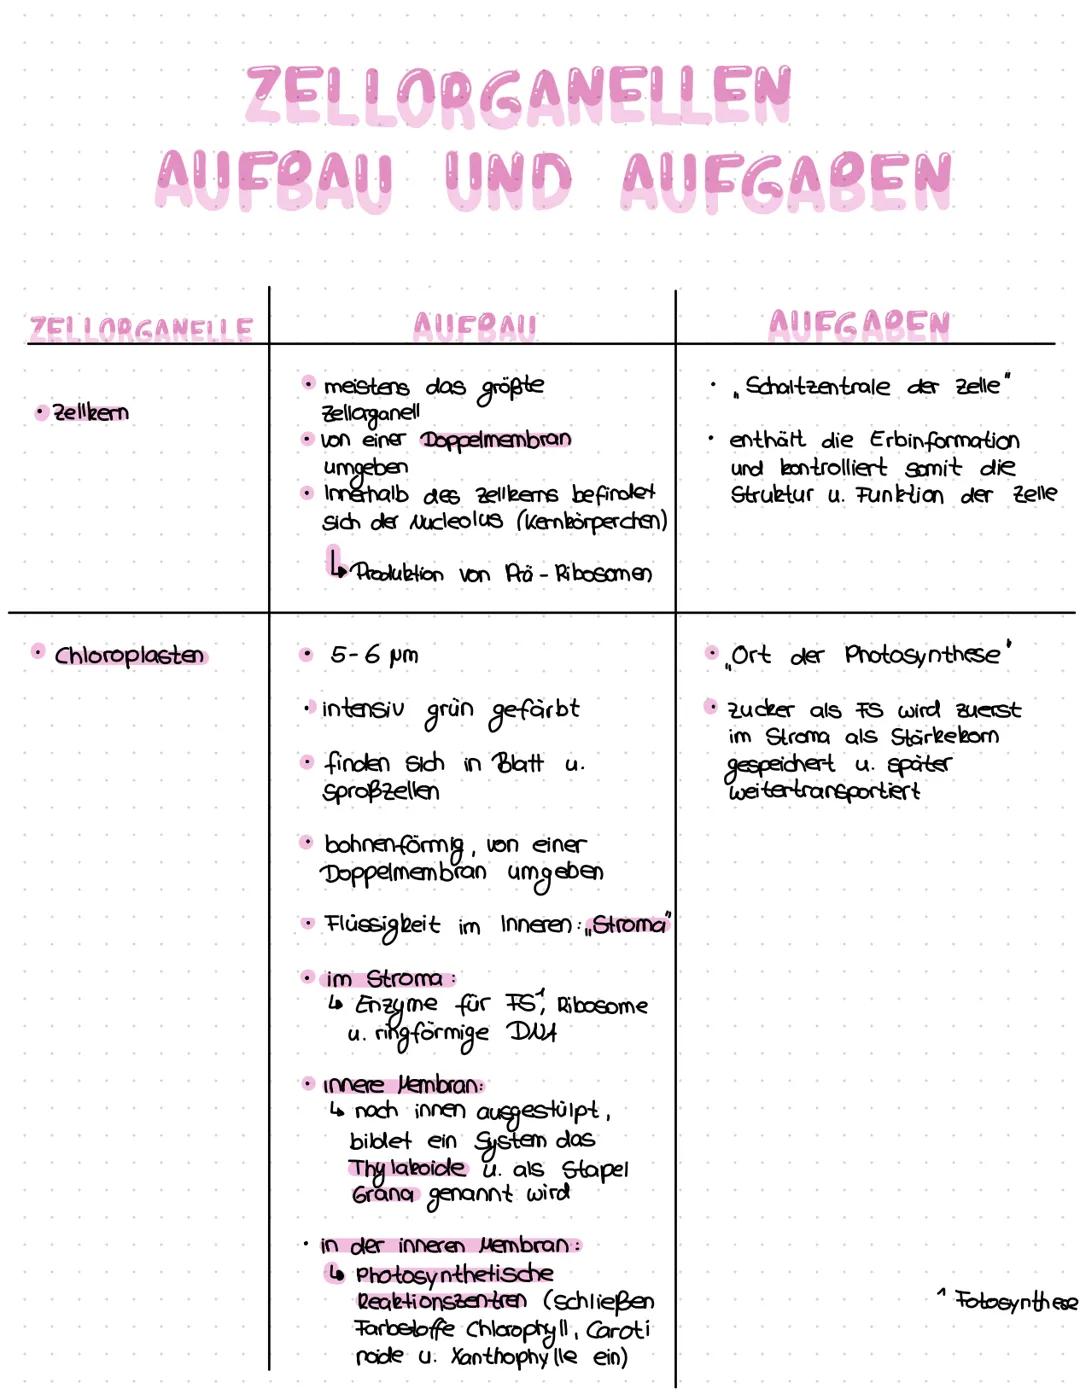 ZELLORGANELLEN
AUFBAU UND AUFGABEN
ZELLORGANELLE
AUFBAU
AUFGABEN
• Zellkern
• meistens das größte
Zellorganell
• von einer Doppelmembran
umgeben
• Innerhalb des Zellkerns befindet
sich der Nucleolus (Kernkörperchen)
↳ Produktion von Prä-Ribosomen
• „Schaltzentrale der Zelle"
• enthält die Erbinformation
und kontrolliert somit die
Struktur u. Funktion der Zelle
• Chloroplasten
• 5-6 µm
• intensiv grün gefärbt
• finden sich in Blatt u.
sproßzellen
• bohnenförmig, von einer
Doppelmembran umgeben
• Flüssigkeit im Inneren: „Stroma"
• im Stroma:
↳ Enzyme für FS¹, Ribosome
u. ringförmige DNA
• innere Membran:
↳ nach innen ausgestülpt,
bildet ein System das
Thylakoide u. als Stapel
Grana genannt wird
• in der inneren Membran:
↳ Photosynthetische
Reaktionszentren (schließen
Farbstoffe Chlorophyll, Caroti
noide u. Xanthophylle ein)
• „Ort der Photosynthese"
• Zucker als FS wird zuerst
im Stroma als Stärkekorn
gespeichert u. später
weitertransportiert
¹ Fotosynthese